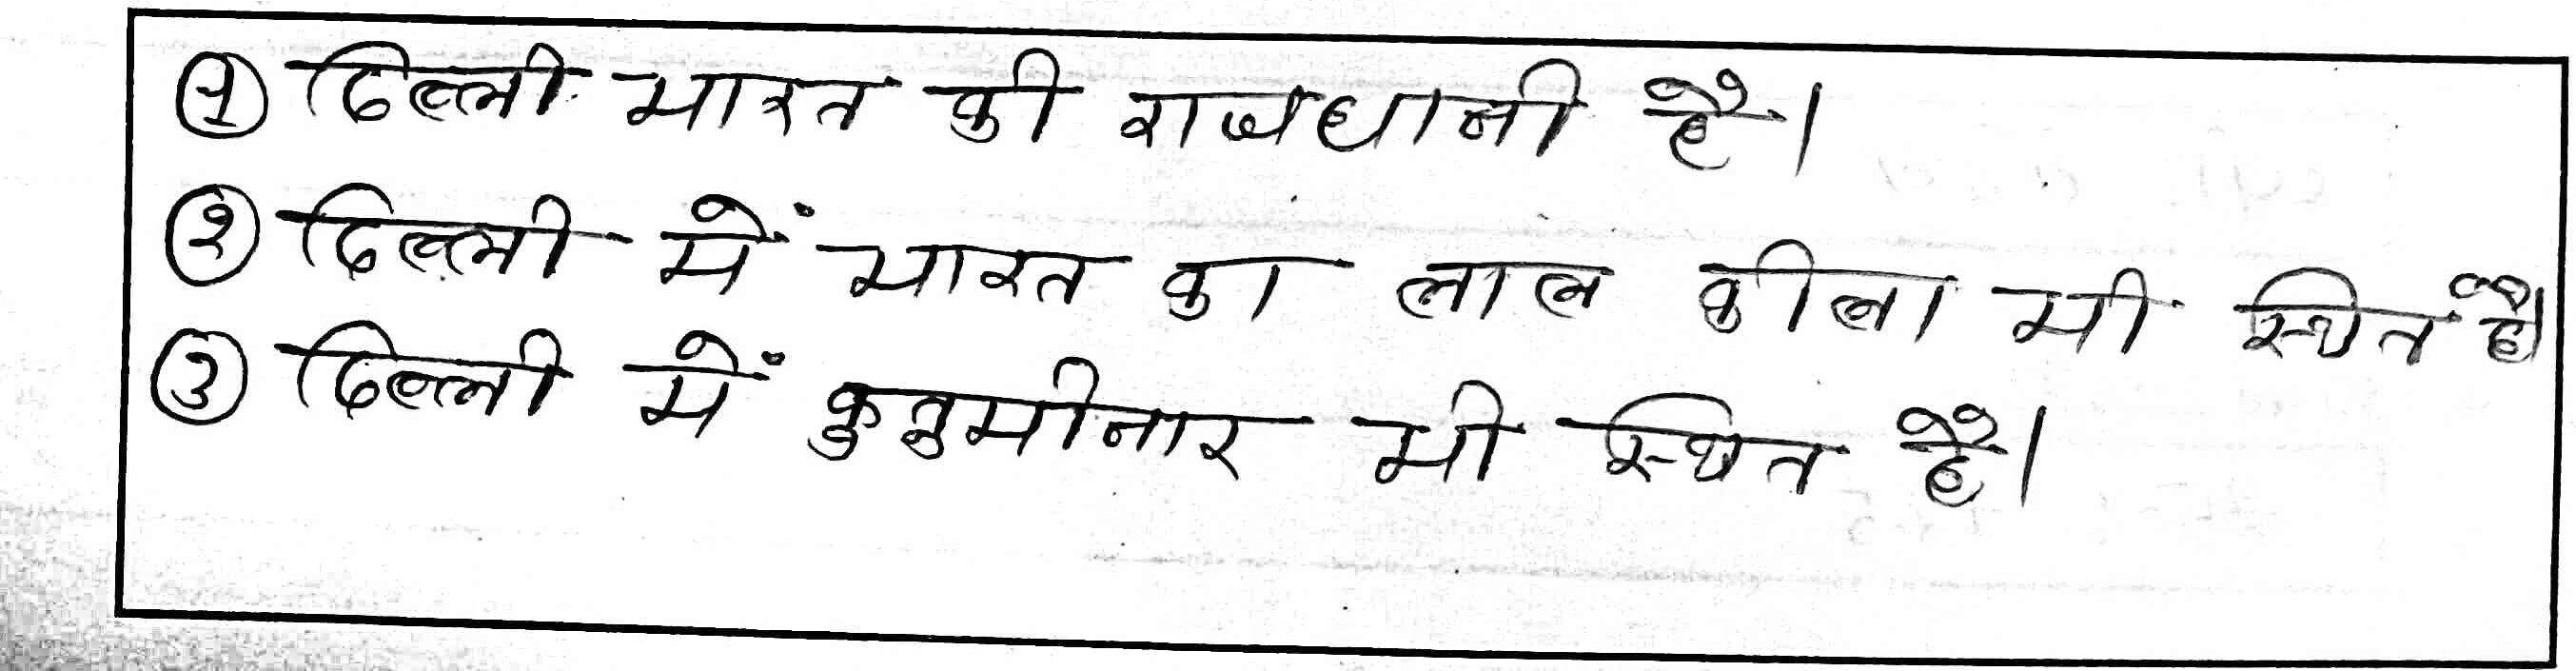 ① दिल्ली भारत की राजधानी है।
② दिल्ली में भारत का लाल कीला भी स्थित है।
③ दिल्ली में कुतुमीनार भी स्थित है।